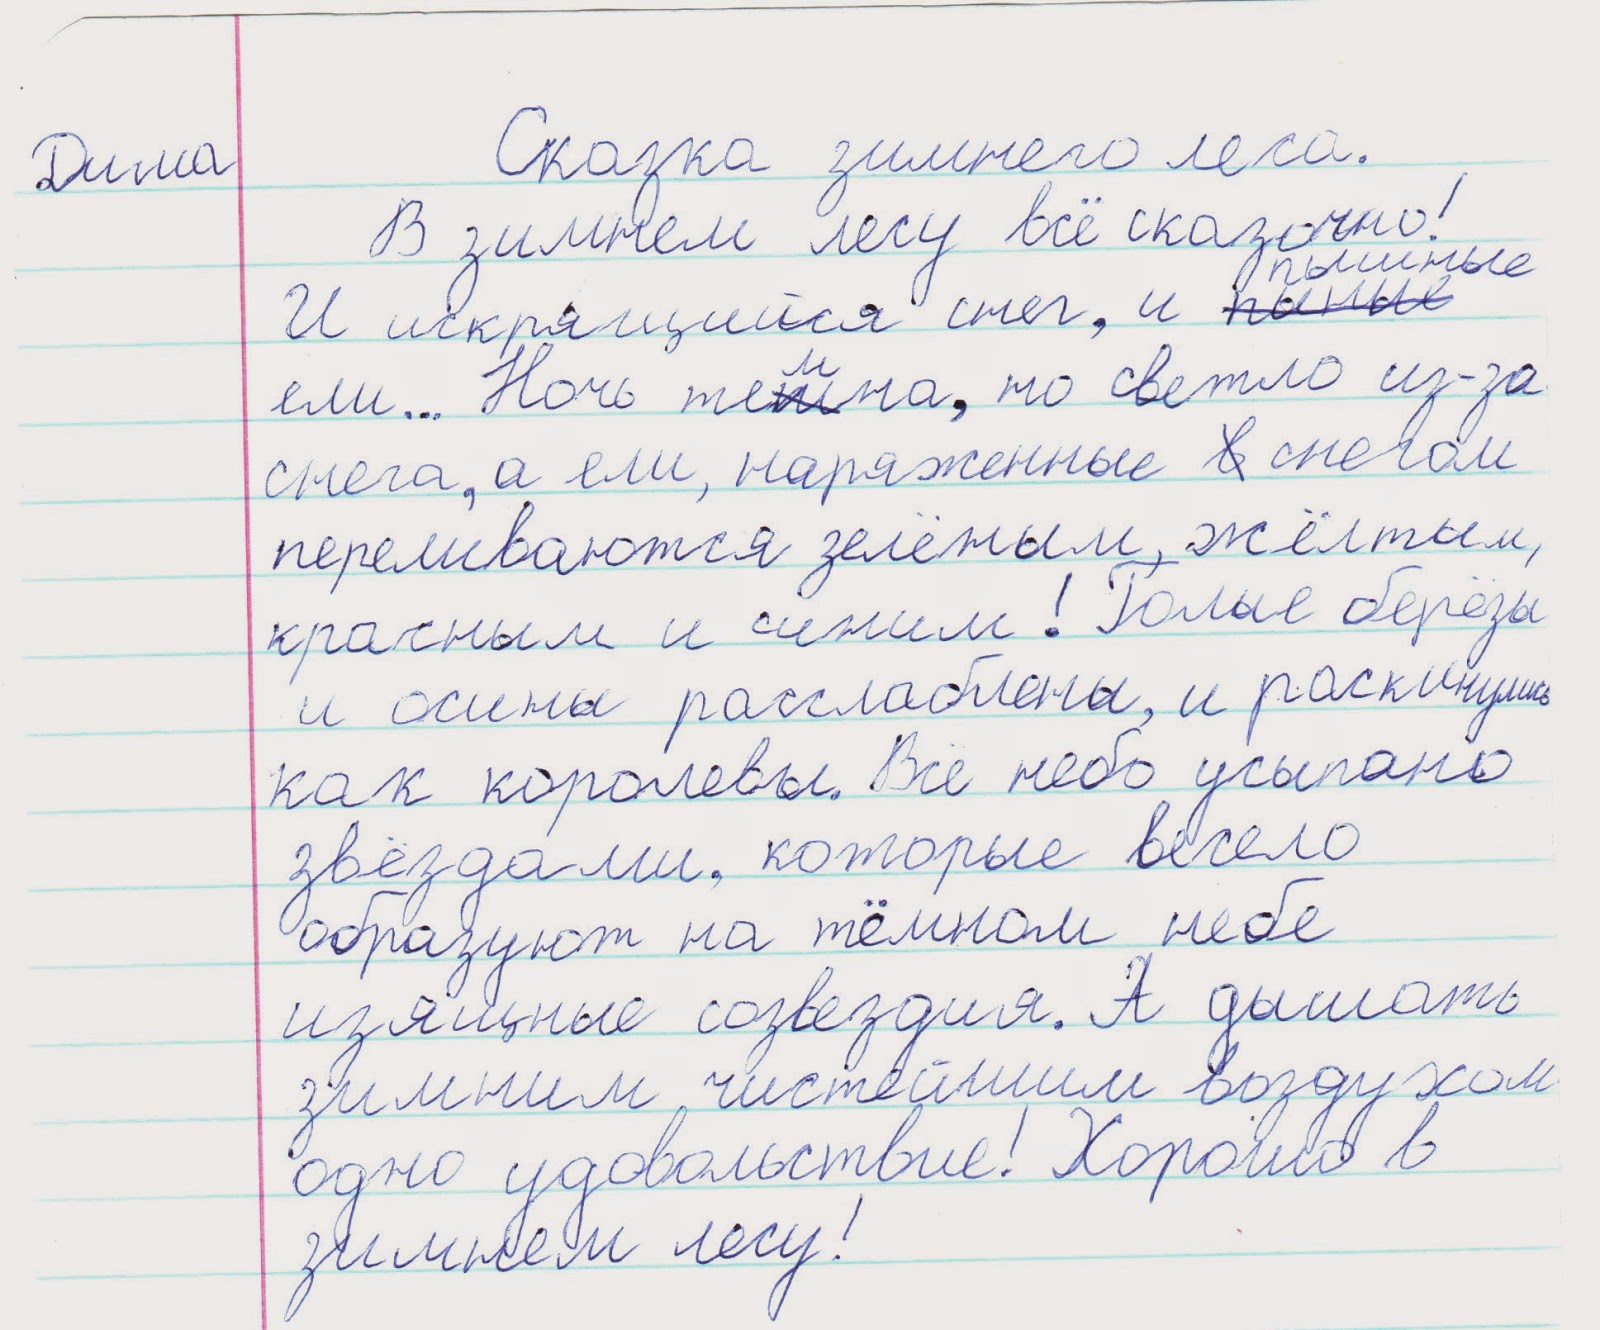 Дима
Сказка зимнего леса.
В зимнем лесу всё сказочно!
И искрящийся снег, и пышные
ели... Ночь темна, но светло из-за
снега, а ели, наряженные снегом
переливаются зелёным, жёлтым,
красным и синим! Голые берёзы
и осины расслаблены, и раскинулись
как королевы. Всё небо усыпано
звёздами, которые весело
образуют на тёмном небе
изящные созвездия. А дышать
зимним чистейшим воздухом
одно удовольствие! Хорошо в
зимнем лесу!